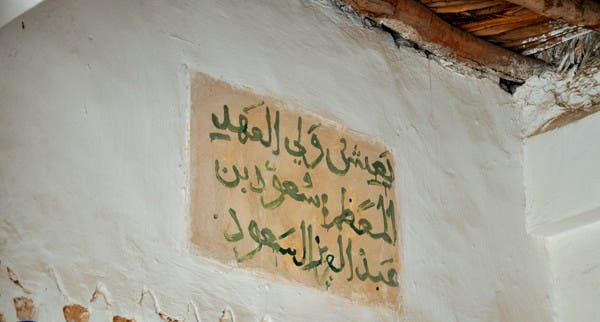 يَعيش وَلي العَهد
المعَظم سُعوّد بن
عَبد العزيز السَعود